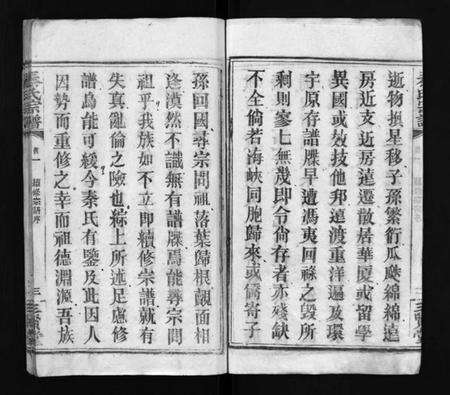 逝物換星移子孫繁衍瓜瓞綿綿遠
房近支近房遠遷散居華厦或留學
異國或效技他邦遠渡重洋遍及環
宇原存譜牒早遭馮夷回祿之毀所
剩則寥七無幾即令尙存者亦殘缺
不全倘若海峽同胞歸來或僑寄子
孫回國尋宗問祖落葉歸根覿面相
逢漠然不識無有譜牒焉能尋宗問
祖乎我族如不立即續修宗譜就有
失真亂倫之險也綜上所述足慮修
譜烏能可緩今秦氏有鑒及此因人
因勢而重修之幸而祖德淵源吾族
氏宗譜
三